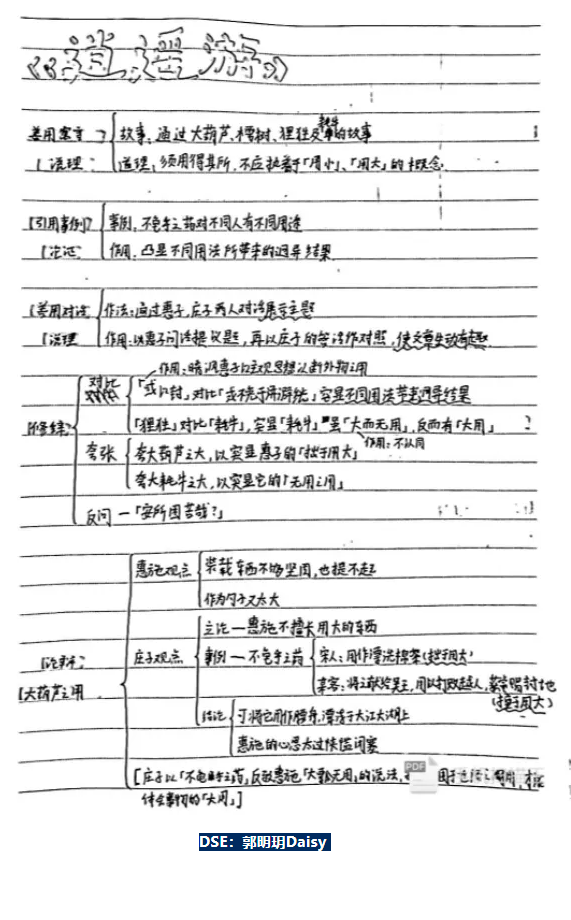 《逍遥游》
善用寓言 故事：通过大葫芦、樗树、狸狌及牦牛的故事
说理： 道理：须用得其所，不应执着于「用小」、「用大」的概念
[引用事例] 事例：不龟手之药对不同人有不同用途
论证： 作用：凸显不同用法所带来的迥异结果
[善用对话 作法：通过惠子、庄子两人对话展示主题
说理 作用：以惠子问话提议题，再以庄子的答话作对照，使文章生动有趣
作用：暗讽惠子以主观思想认断外物之用
对比 「或以封」对比「或不免于洴澼絖」突显不同用法带来迥异结果
「狸狌」对比「牦牛」，突显「牦牛」虽「大而无用」，反而有「大用」
修辞： 作用：不认同
夸张 夸大葫芦之大，以突显惠子的「拙于用大」
夸大牦牛之大，以突显它的「无用之用」
反问 —「安所困苦哉？」
惠施观点 装载东西不够坚固，也提不起
作为勺子又太大
立论 — 惠施不擅长用大的东西
论群： 庄子观点 事例 — 不龟手之药 宋人：用作漂洗棉絮(拙于用大)
[大葫芦之用 客：将之献给吴王，用以打败越人，获赏赐封地
(擅于用大)
结论 可将它用作腰舟，漂浮于大江大湖上
惠施的心思太过狭隘闭塞
[庄子以「不龟手之药」反驳惠施「大瓠无用」的说法，
体会事物的「大用」]
PDF
DSE：郭明玥Daisy